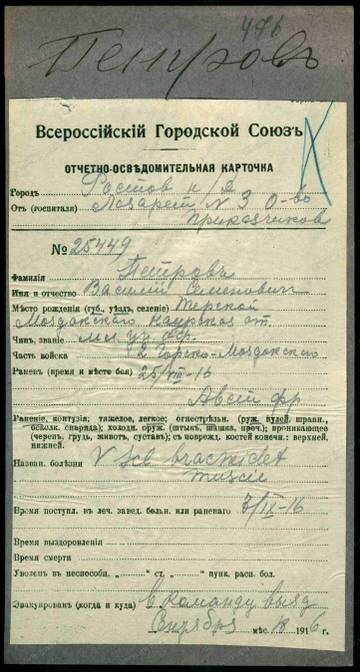 496
Петровъ
Всероссійскій Городской Союзъ
ОТЧЕТНО-ОСВѢДОМИТЕЛЬНАЯ КАРТОЧКА
Городъ Ростов н/Д
Отъ (госпиталя) Лазарет N 3 О-во
приказчиков
№ 25449
Фамилія Петровъ
Имя и отчество Василій Семенович
Мѣсто рожденія (губ., уѣздъ, селеніе) Терской
Моздокскаго ст.
Чинъ, званіе
Часть войска 2 Горско-Моздокскаго
Раненъ (время и мѣсто боя) 25/VIII-16
фр
Раненіе, контузія: тяжелое, легкое; огнестрѣльн. (руж. пулей, шрапн.,
осколк. снаряда); холодн. оруж. (штыкъ, шашка, проч.); проникающее
(черепъ, грудь, животъ, суставъ); съ поврежд. костей конечн.: верхней,
нижней.
Назван. болѣзни V scl
Время поступл. въ леч. завед. больн. или раненаго 3/IX-16
Время выздоровленія
Время смерти
Уволенъ въ неспособн. „ “ ст. „ “ пунк. расп. бол.
Эвакуированъ (когда и куда) в команду вызд
мѣс. 1916 г.